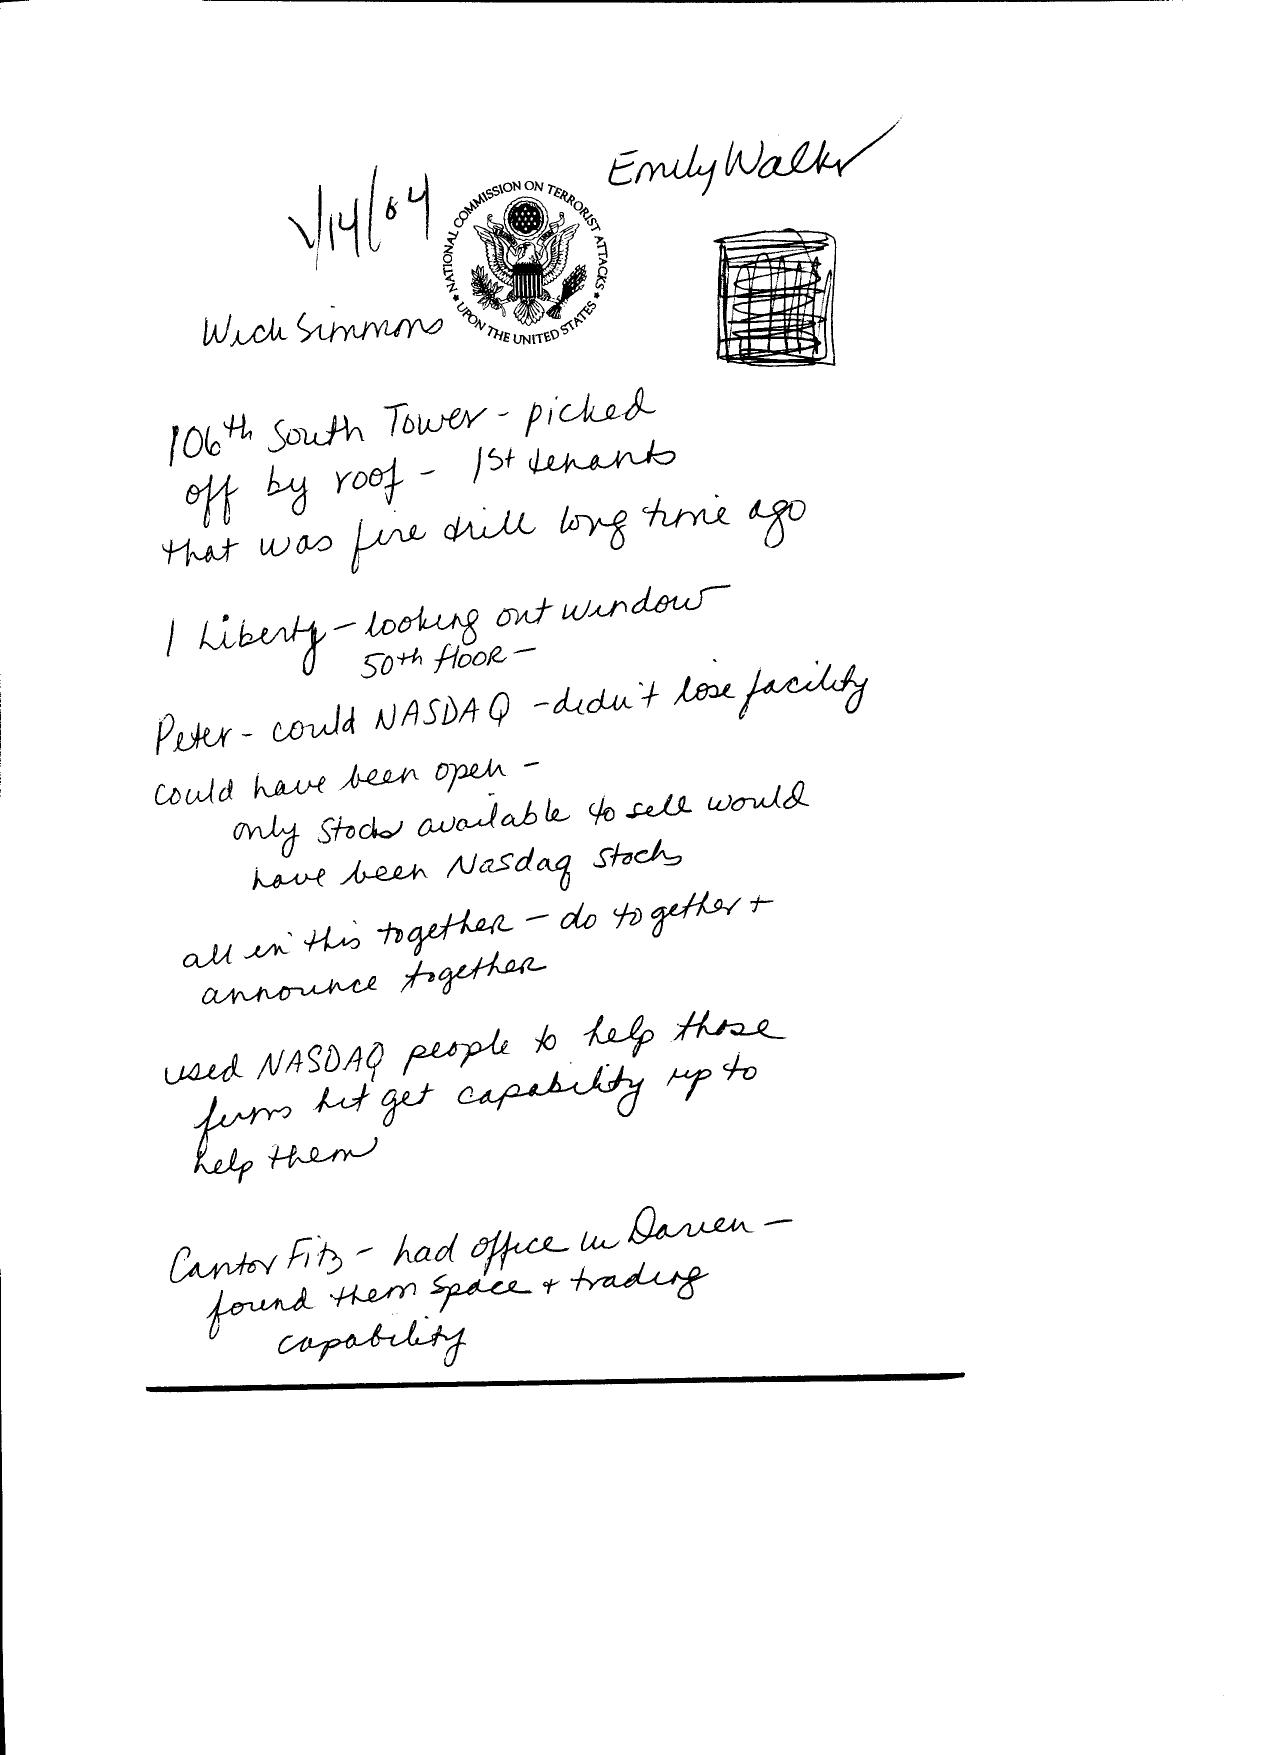 Emily Walker
1/14/04
NATIONAL COMMISSION ON TERRORIST ATTACKS
UPON THE UNITED STATES
Wick Simmons
106th South Tower - picked
off by roof - 1st tenants
that was fire drill long time ago
1 Liberty - looking out window
50th floor -
Peter - could NASDAQ - didn't lose facility
could have been open -
only stocks available to sell would
have been Nasdaq stocks
all in this together - do together +
announce together
used NASDAQ people to help those
firms hit get capability up to
help them
Cantor Fitz - had office in Darien -
found them space + trading
capability